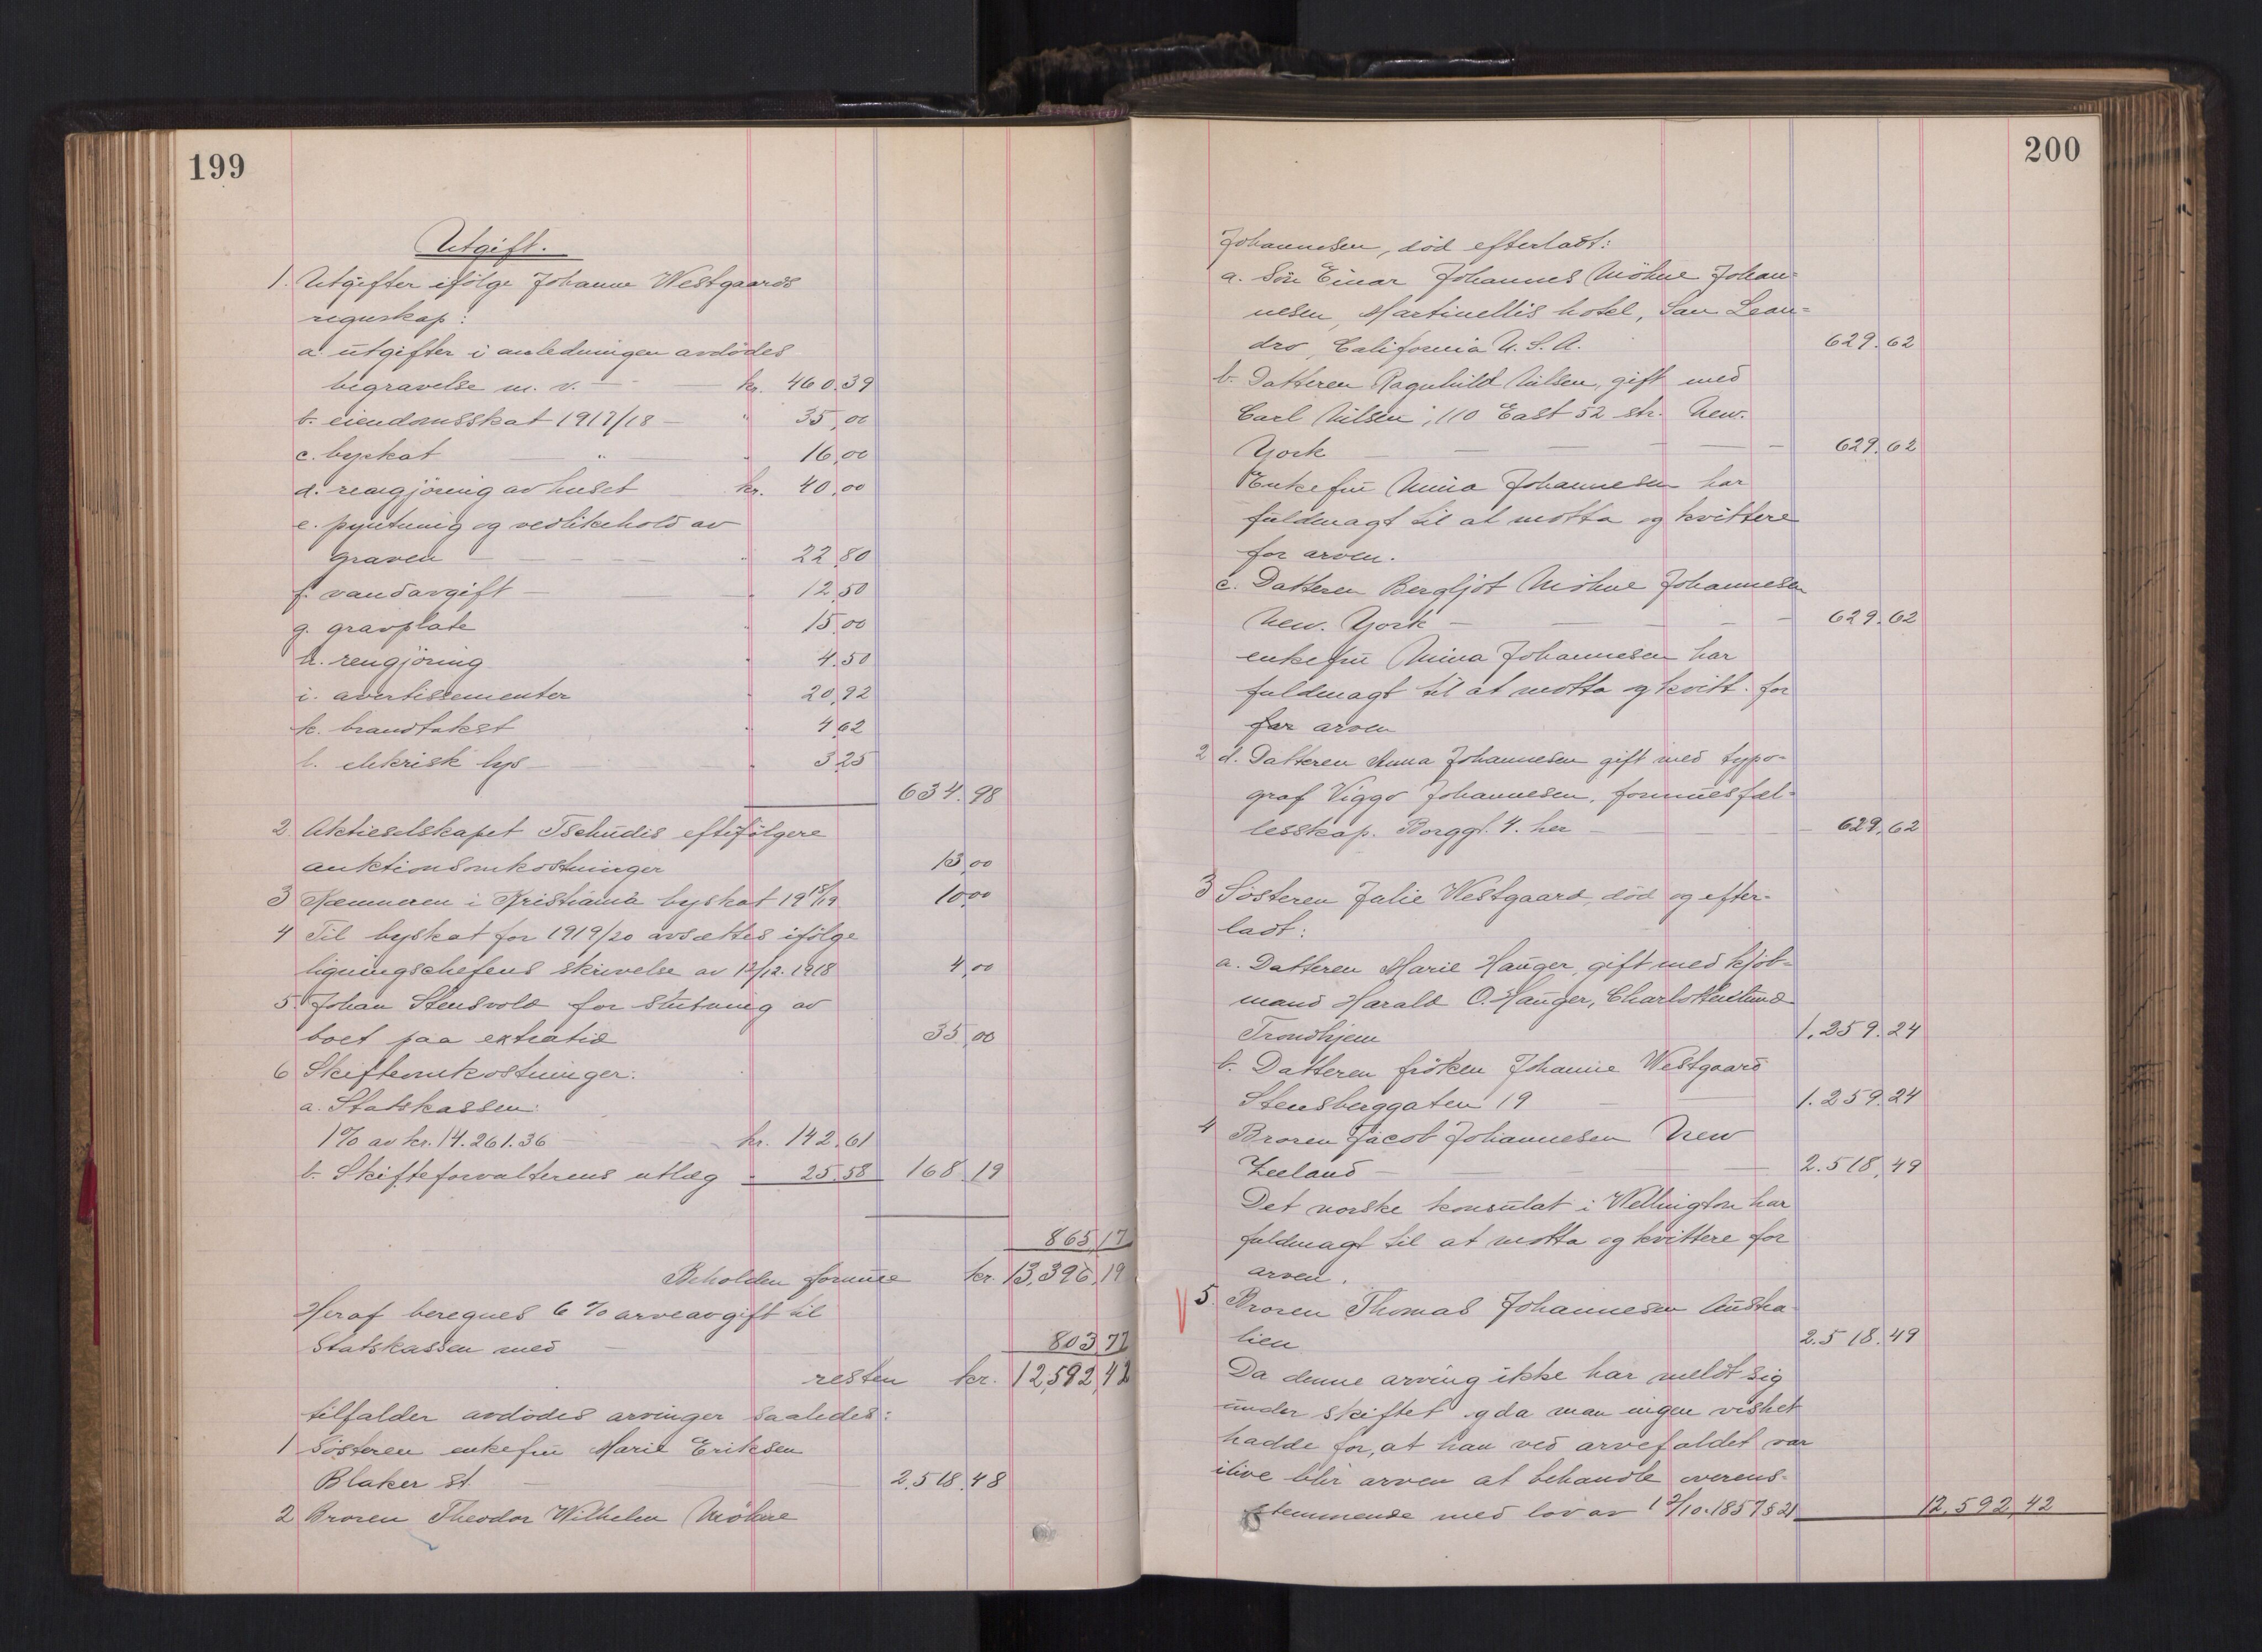 199
Utgift.
1. Utgifter ifölge Johanne Westgaards
regnskap:
a. utgifter i anledningen avdödes
begravelse m. v. — kr. 460.39
b. eiendomsskat 1917/18 — " 35,00
c. byskat — " — " 16,00
d. rengjöring av huset kr. 40,00
e. pyntning og vedlikehold av
graven — " 22,80
f. vandavgift — " 12,50
g. gravplate " 15,00
h. rengjöring " 4.50
i. avertissementer " 20,92
k. brandtakst " 4,62
l. elektrisk lys — " 3,25
634.98
2 Aktieselskapet Tschudis efterfölgere
auktionsomkostninger 13,00
3 Kemneren i Kristiania byskat 19 18/19 10,00
4 Til byskat for 1919/20 avsættes ifölge
ligningschefens skrivelse av 12/12. 1918 4,00
5 Johan Stensvold for slutning av
boet paa extratid 35,00
6 Skifteomkostninger:
a. Statskassen:
1% av kr. 14.261.36 kr. 142,61
b. Skifteforvalterens utlæg " 25.58 168.19
865,17
Beholden formue kr. 13,396,19
Heraf beregnes 6 % arveavgift til
Statskassen med — 803,77
resten kr. 12,592,42
tilfalder avdödes arvinger saaledes:
1 Sösteren enkefru Marie Eriksen
Blaker st. — 2.518.48
2 Broren Theodor Wilhelm Möhne
200
Johannesen, död efterladt:
a. Sön Einar Johannes Möhne Johan=
nesen, Martinellis hotel, San Lean=
dro, California U. S. A. 629.62
b. Datteren Ragnhild Nilsen, gift med
Carl Nilsen, 110 East 52 str. New.
York — 629.62
Enkefru Mina Johannesen har
fuldmagt til at motta og kvittere
for arven.
c. Datteren Bergljot Möhne Johannesen
New. York — 629.62
enkefru Mina Johannesen har
fuldmagt til at motta og kvitt. for
for arven
2 d. Datteren Anna Johannesen gift med typo-
graf Viggo Johannesen, formuesfæl-
lesskap. Borggt. 4. her — 629,62
3 Sösteren Julie Westgaard, död og efter-
ladt:
a. Datteren Marie Hauger, gift med kjöb-
mand Harald O. Hauger, Charlottenlund
Trondhjem 1.259.24
b. Datteren fröken Johanne Westgaard
Stensberggaten 19 1.259.24
4 Broren Jacob Johannesen New
Zeeland — 2.518,49
Det norske konsulat i Wellington har
fuldmagt til at motta og kvittere for
arven.
5. Broren Thomas Johannesen Austra-
lien 2.518.49
Da denne arving ikke har meldt sig
under skiftet og da man ingen vished
hadde for, at han ved arvefaldet var
ilive blir arven at behandle overens-
stemmende med lov av 12/10. 1857 § 21 12.592,42